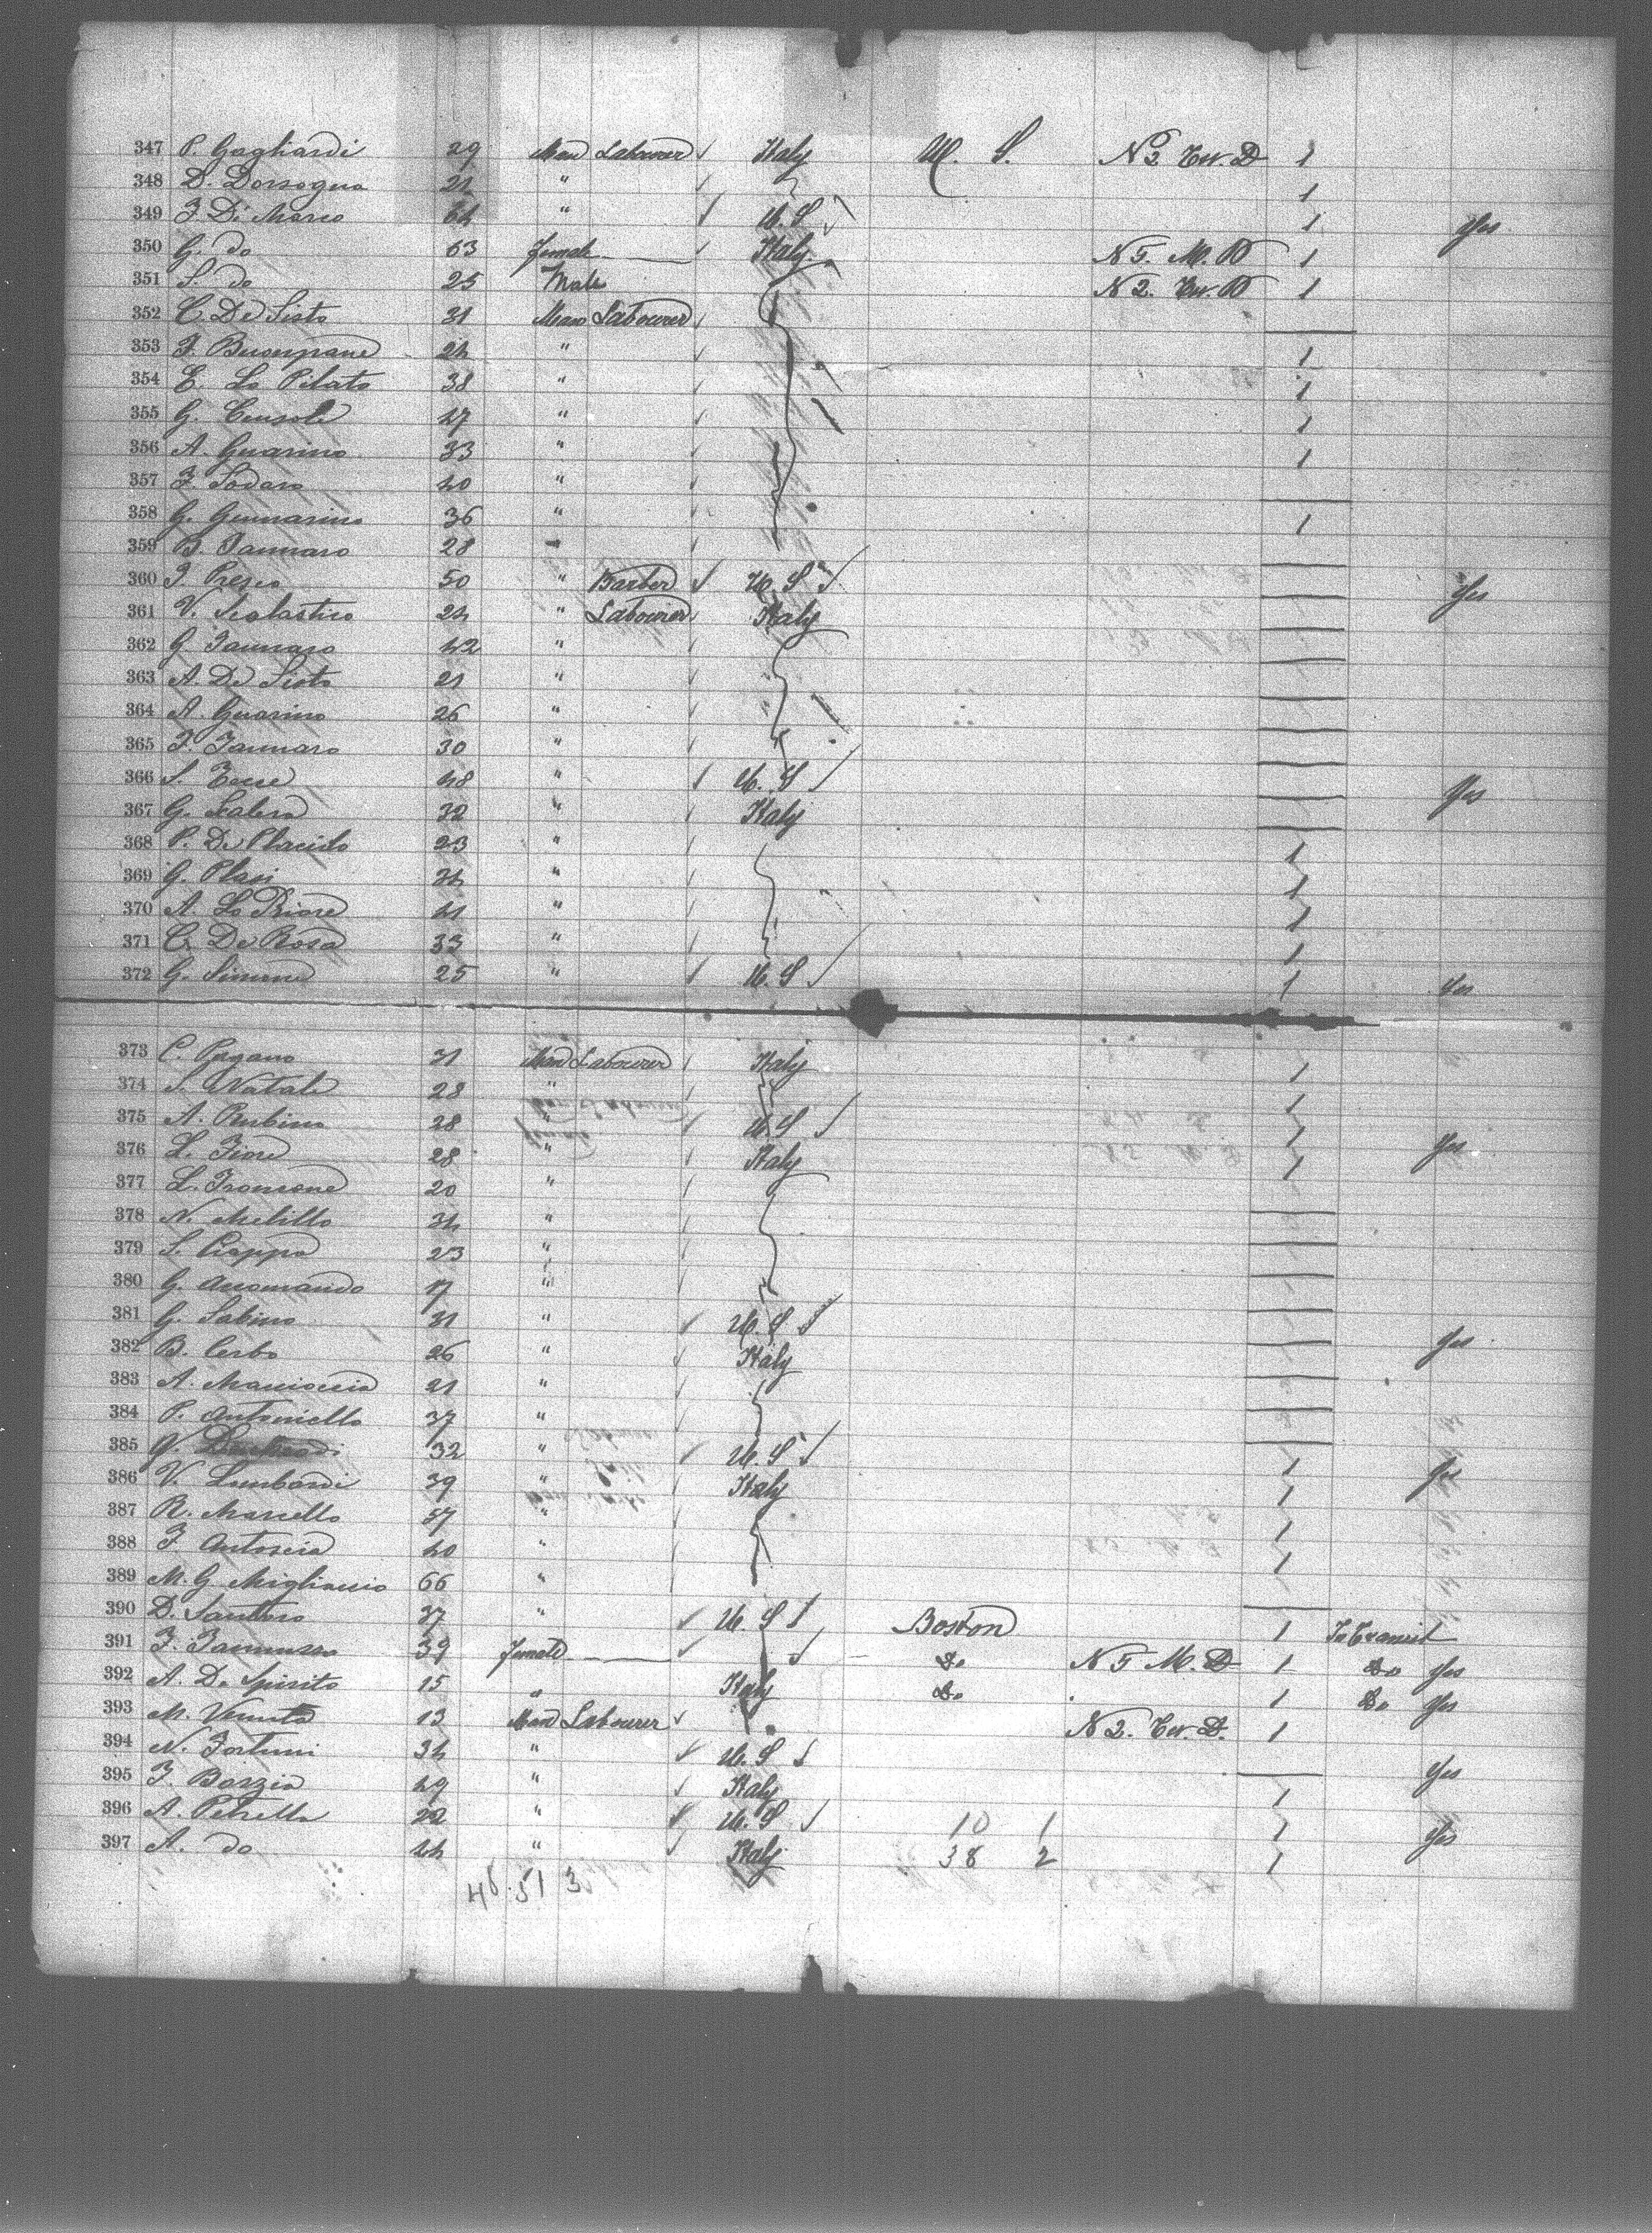 347 P. Gagliardi 29 Man Labourer Italy U. S. N 2 Tw. D 1
348 D. Dorsogna 21 " 1
349 F. Di Marco 64 " U. S 1 Yes
350 G. do 63 female Italy N 5. M. D 1
351 S. do 25 Male N 2. Tw. D 1
352 C. De Sisto 31 Man Labourer
353 F. 24 " 1
354 E. Lo Pilato 38 " 1
355 G. Console 47 " 1
356 A. Guarino 33 " 1
357 F. Sodaro 40 "
358 G. Gennarino 36 " 1
359 B. Iannaro 28 "
360 F. Presco 50 " Barber U. S Yes
361 V. Scolastico 24 " Labourer Italy
362 G Iannaro 42 "
363 A. De Sisto 21 "
364 A. Guarino 26 "
365 F. Iannaro 30 "
366 S. 48 " U. S Yes
367 G. Salera 32 " Italy
368 P. De Placido 23 " 1
369 G. Plasi 34 " 1
370 A. Lo Priore 41 " 1
371 C. De Rosa 33 " 1
372 G. Simone 25 " U. S 1 Yes
373 C. Pagano 31 Man Labourer Italy 1
374 S. Natale 28 " 1
375 A. Rubino 28 " U. S 1 Yes
376 L. Fiore 28 " Italy 1
377 L. Troncone 20 "
378 N. Melillo 34 "
379 S. Ciappa 23 "
380 G. Accomando 17 "
381 G. Sabino 31 " U. S Yes
382 B. Cerbo 26 " Italy
383 A. Macioccia 21 "
384 P. Antoniello 37 "
385 32 " U. S 1 Yes
386 V. Lombardi 39 " Italy 1
387 R. Marcello 37 " 1
388 F. 40 " 1
389 M. G. Migliaccio 66 "
390 D. Santoro 37 " U. S Boston 1 In Transit
391 F. 39 female Do N 5 M. D 1 Do Yes
392 A. De Spirito 15 " Italy Do 1 Do Yes
393 M. 13 Man Labourer N 2. Tw. D. 1
394 N. Fortuni 34 " U. S Yes
395 F. Barzia 49 " Italy 1
396 A. Petrella 22 " U. S 10 1 1 Yes
397 A. do 44 " Italy 38 2 1
48. 51 3